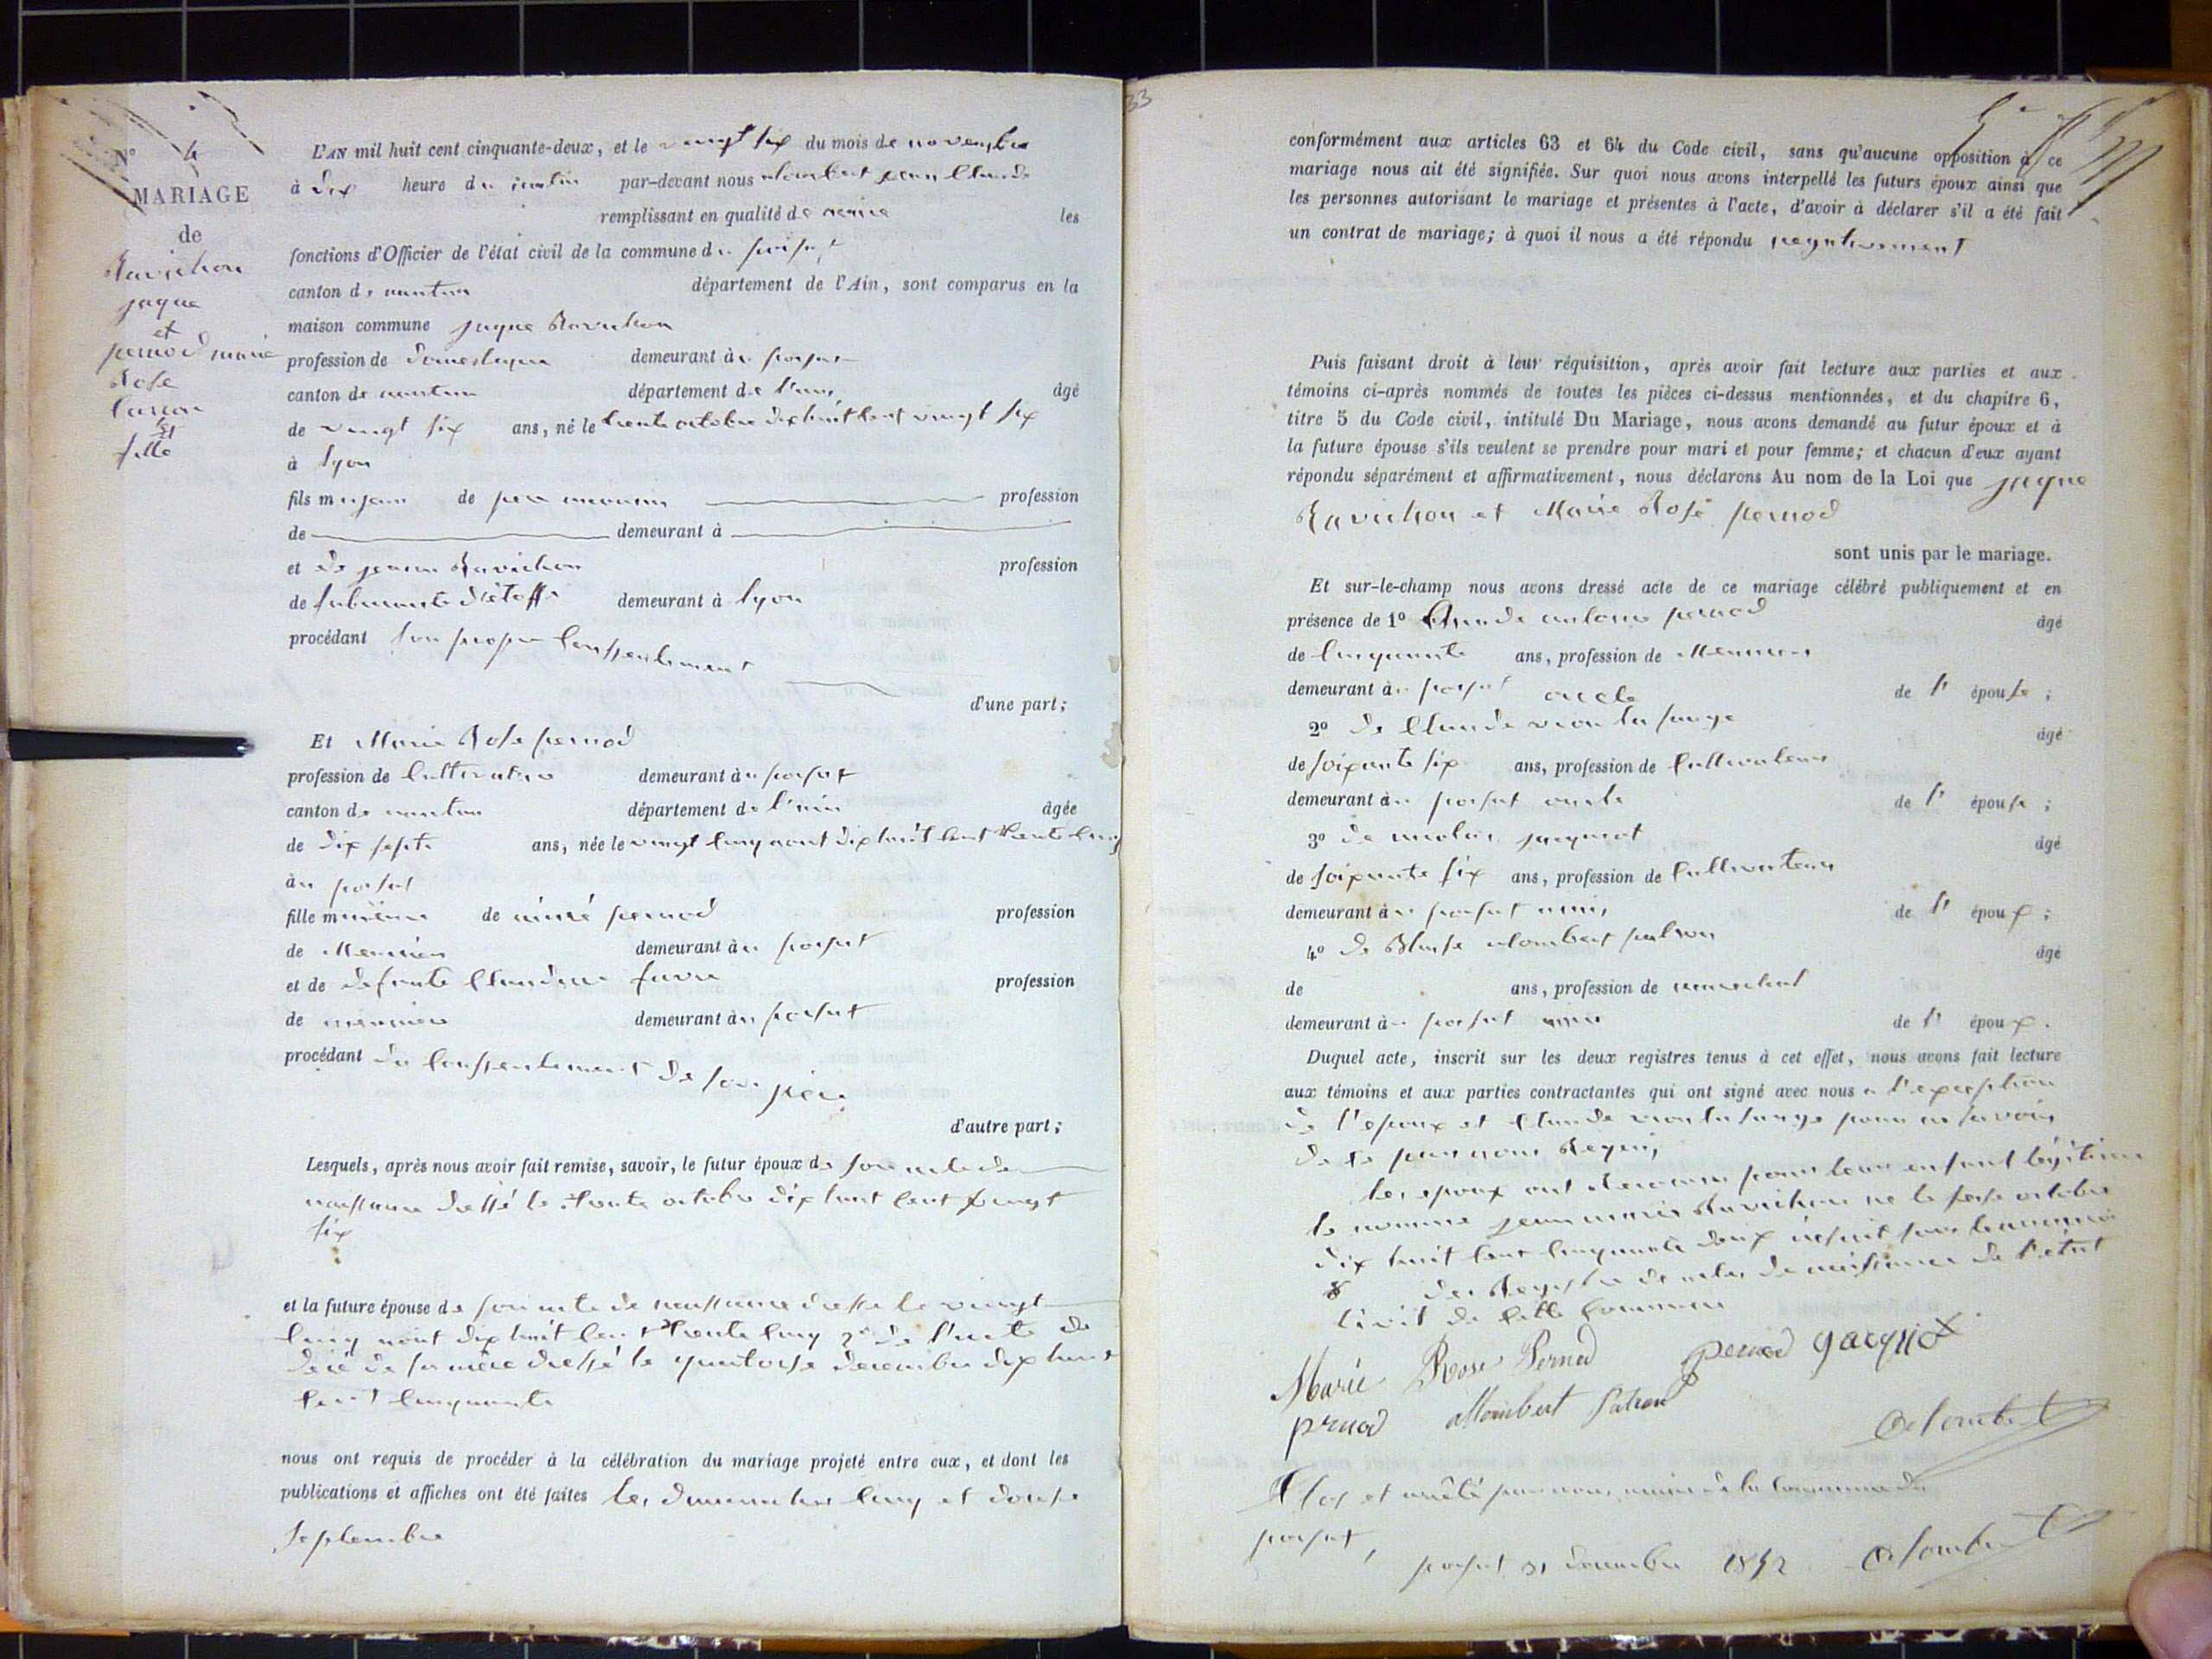 N° 4
MARIAGE
de
Ravichon
jaque
et
pernod marie
Rose
garçon
et
fille
L'AN mil huit cent cinquante-deux, et le vingt six du mois de novembre
à dix heure du matin par-devant nous alombert jean Claude
remplissant en qualité de maire les
fonctions d'Officier de l'état civil de la commune du poisat
canton de nantua département de l'Ain, sont comparus en la
maison commune jaque Ravichon
profession de domestique demeurant àu poisat
canton de nantua département de l'ain âgé
de vingt six ans, né le trente octobre dix huit cent vingt six
à lyon
fils majeur de père inconnu profession
de demeurant à
et de Ravichon profession
de fabricante d'étoffe demeurant à lyon
procédant son propre conssentement
d'une part;
Et Marie Rose pernod
profession de cultivatrice demeurant àu poisat
canton de nantua département de l'ain âgée
de dix septe ans, née le vingt cinq aout dix huit cent trente cinq
àu poisat
fille mineure de aimé pernod profession
de Meunier demeurant àu poisat
et de defunte Claudine favre profession
de meunière demeurant àu poisat
procédant du conssentement de son père
d'autre part;
Lesquels, après nous avoir fait remise, savoir, le futur époux de son acte de
naissance dressé le trente octobre dix huit cent vingt
six
et la future épouse de son acte de naissance dressé le vingt
cinq aout dix huit cent trente cinq 2° de l'acte de
décé de sa mère dressé le quatorse decembre dix huit
cent cinquante
nous ont requis de procéder à la célébration du mariage projeté entre eux, et dont les
publications et affiches ont été faites les dimanches cinq et douse
septembre
33
conformément aux articles 63 et 64 du Code civil, sans qu'aucune opposition à ce
mariage nous ait été signifiée. Sur quoi nous avons interpellé les futurs époux ainsi que
les personnes autorisant le mariage et présentes à l'acte, d'avoir à déclarer s'il a été fait
un contrat de mariage; à quoi il nous a été répondu negativement
Puis faisant droit à leur réquisition, après avoir fait lecture aux parties et aux
témoins ci-après nommés de toutes les pièces ci-dessus mentionnées, et du chapitre 6,
titre 5 du Code civil, intitulé Du Mariage, nous avons demandé au futur époux et à
la future épouse s'ils veulent se prendre pour mari et pour femme; et chacun d'eux ayant
répondu séparément et affirmativement, nous déclarons Au nom de la Loi que jaque
Ravichon et Marie Rose pernod
sont unis par le mariage.
Et sur-le-champ nous avons dressé acte de ce mariage célébré publiquement et en
présence de 1° Claude antoine pernod âgé
de cinquante ans, profession de Meunier
demeurant àu poisat oncle de l' épouse;
2° de Claude âgé
de soixante six ans, profession de cultivateur
demeurant àu poisat oncle de l' épouse;
3° de nicolas jacquiot âgé
de soixante six ans, profession de cultivateur
demeurant àu poisat ami de l' époux;
4° de Blaise alombert patron âgé
de ans, profession de marechal
demeurant àu poisat ami de l' époux.
Duquel acte, inscrit sur les deux registres tenus à cet effet, nous avons fait lecture
aux témoins et aux parties contractantes qui ont signé avec nous a l'exception
de l'epoux et Claude pour ne savoir
de ce par nous Requis
les epoux ont reconnu pour leur enfant légitime
le nomme jean marie Ravichon ne le octobre
dix huit cent cinquante deux inscrit sous le numero
8 des Registre de actes de naissance de l'état
civil de cette commune
Marie Rose Pernod pernod gacquiot
pernod allombert Patron
alombert
Clos et arrêté par nous, maire de la commune du
poisat,
poisat 31 decembre 1852 alombert